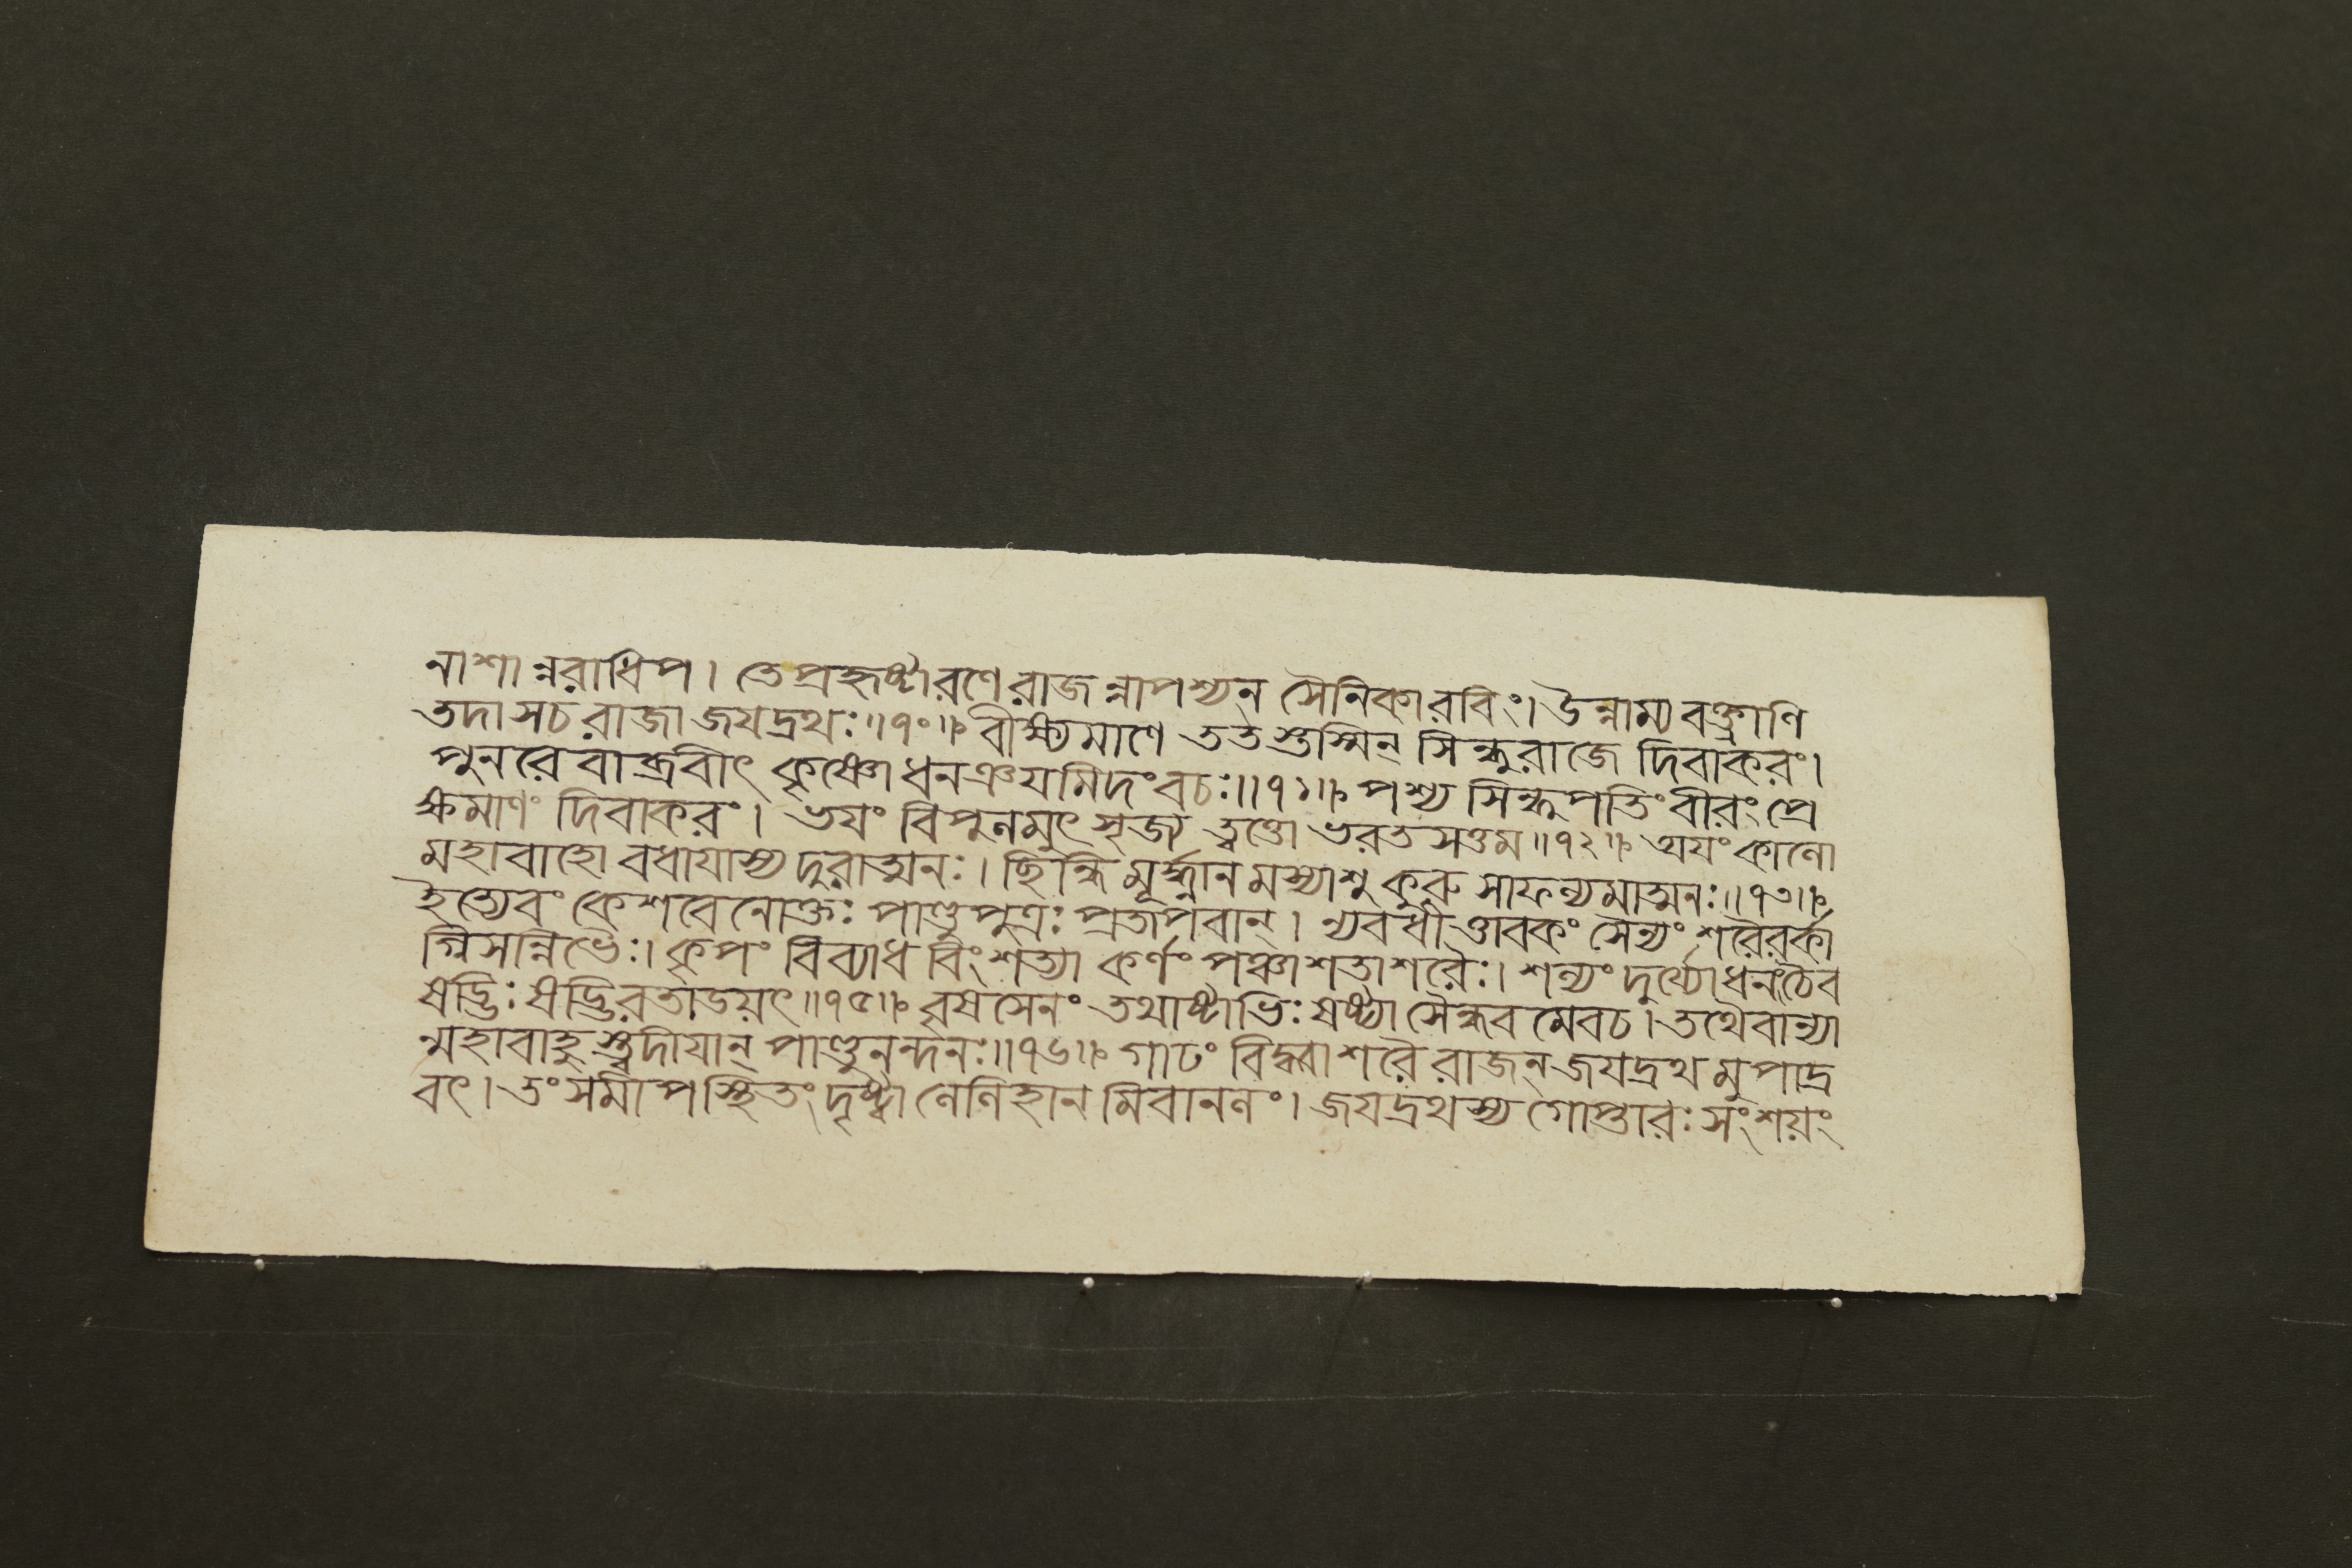 নাশান্নরাধিপ। তে প্রহৃষ্টারণে রাজন্নাপশ্যন সৈনিকারবিং। উন্নাম্য বক্ত্রাণি
তদা সচ রাজা জযদ্রথঃ॥৭০॥ বীক্ষ্যমাণে ততস্তস্মিন্ সিন্ধুরাজে দিবাকরং।
পুনরেবাব্রবীৎ কৃষ্ণো ধনঞ্জযমিদং বচঃ॥৭১॥ পশ্য সিন্ধুপতিং বীরং প্রে
ক্ষমাণং দিবাকরং। ভযং বিপুলমুৎসৃজ্য ত্বত্তো ভরতসত্তম॥৭২॥ অযং কালো
মহাবাহো বধাযাস্য দুরাত্মনঃ। ছিন্ধি মূর্দ্ধান মস্যাশু কুরু সাফল্যমাত্মনঃ॥৭৩॥
ইত্যেবং কেশবেনোক্তঃ পাণ্ডুপুত্রঃ প্রতাপবান্। ন্যবধীত্তাবকং সৈন্যং শরৈরর্কা
গ্নিসন্নিভৈঃ। কৃপং বিব্যাধ বিংশত্যা কর্ণং পঞ্চাশতা শরৈঃ। শল্যং দুর্য্যোধনংচৈব
ষড্ভিঃ ষড্ভিরতাডয়ৎ॥৭৫॥ বৃষসেনং তথাষ্টাভিঃ ষষ্ট্যা সৈন্ধব মেবচ। তথৈবান্যা
ন্মহাবাহু স্ত্বদীযান্ পাণ্ডুনন্দনঃ॥৭৬॥ গাঢং বিদ্ধ্বা শরৈ রাজন্ জযদ্রথ মুপাদ্র
বৎ। তং সমীপস্থিতং দৃষ্ট্বা লেলিহান মিবানলং। জযদ্রথস্য গোপ্তারঃ সংশয়ং